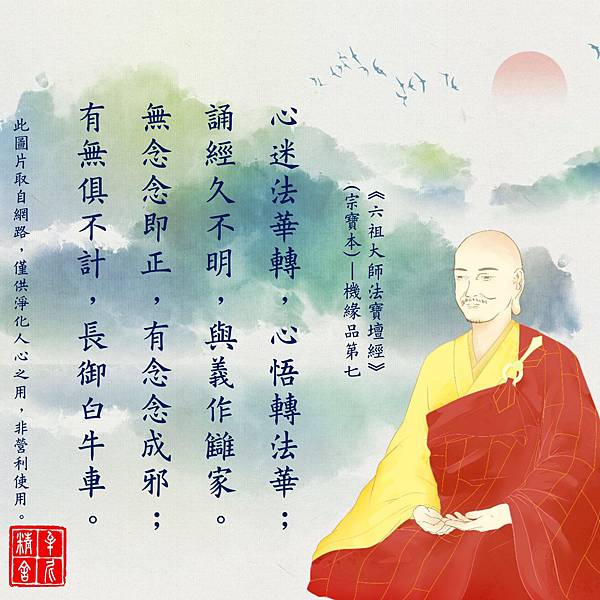 《六祖大師法寶壇經》
(宗寶本)—機緣品第七
心迷法華轉，心悟轉法華；
誦經久不明，與義作讎家。
無念念即正，有念念成邪；
有無俱不計，長御白牛車。
此圖片取自網路，僅供淨化人心之用，非營利使用。